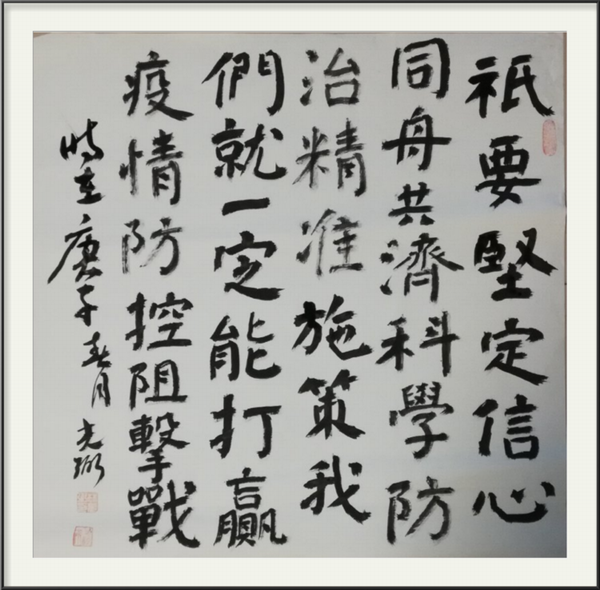 祇要堅定信心
同舟共濟科學防
治精准施策我
們就一定能打贏
疫情防控阻擊戰
時在庚子春月